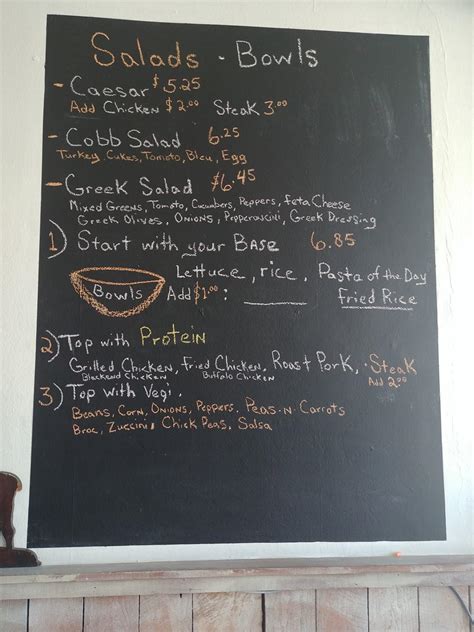 Salads - Bowls
- Caesar $5.25
Add Chicken $2.00 Steak 3.00
- Cobb Salad 6.25
Turkey, Cukes, Tomato, Bleu, Egg
- Greek Salad $6.45
Mixed Greens, Tomato, Cucumbers, Peppers, Feta Cheese
Greek Olives, Onions, Pepperoncini, Greek Dressing
1) Start with your Base 6.85
Lettuce, rice, Pasta of the Day
Bowls Add $1.00: ______ Fried Rice
2) Top with Protein
Grilled Chicken, Fried Chicken, Roast Pork, Steak
Blackend Chicken Buffalo Chicken Add 2.00
3) Top with Vegi.
Beans, Corn, Onions, Peppers, Peas-n-Carrots
Broc, Zuccini, Chick Peas, Salsa